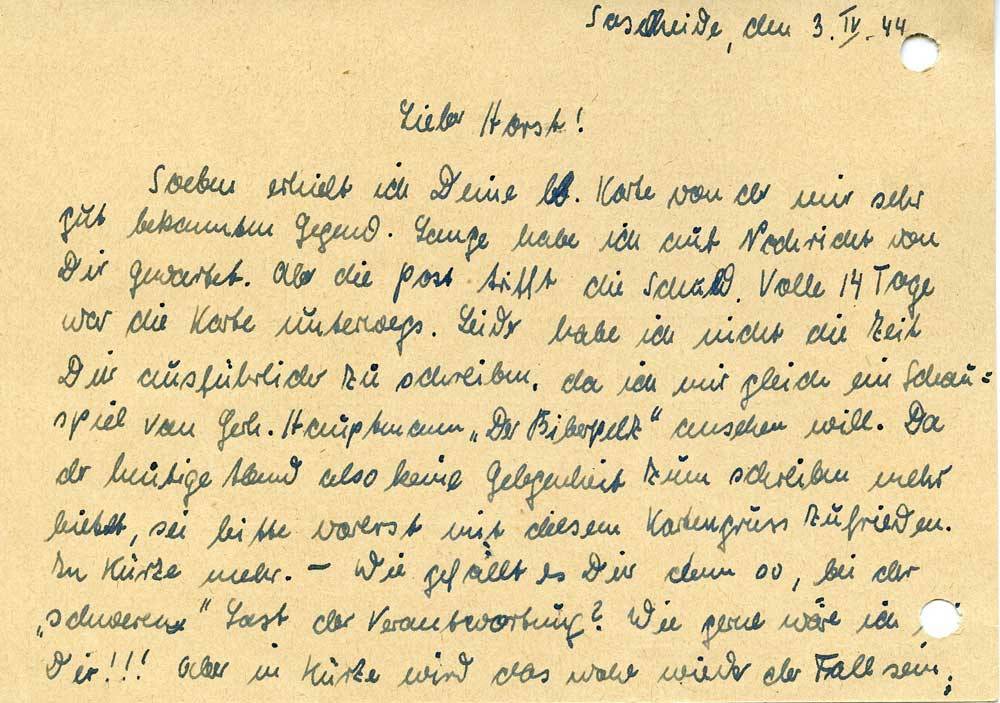 Sascheide, den 3. IV. 44
Lieber Horst!
Soeben erhielt ich Deine lb. Karte von der mir sehr
gut bekannten Gegend. Lange habe ich auf Nachricht von
Dir gewartet. Aber die Post trifft die Schuld. Volle 14 Tage
war die Karte unterwegs. Leider habe ich nicht die Zeit
Dir ausführlicher zu schreiben, da ich mir gleich ein Schau=
spiel von Gerh. Hauptmann „Der Biberpelz“ ansehen will. Da
der heutige Abend also keine Gelegenheit zum schreiben mehr
bietet, sei bitte vorerst mit diesem Kartengruss zufrieden.
In Kürze mehr. – Wie gefällt es Dir denn so, bei der
„schweren“ Last der Verantwortung? Wie gerne wäre ich
Dir!!! Aber in Kürze wird das wohl wieder der Fall sein,